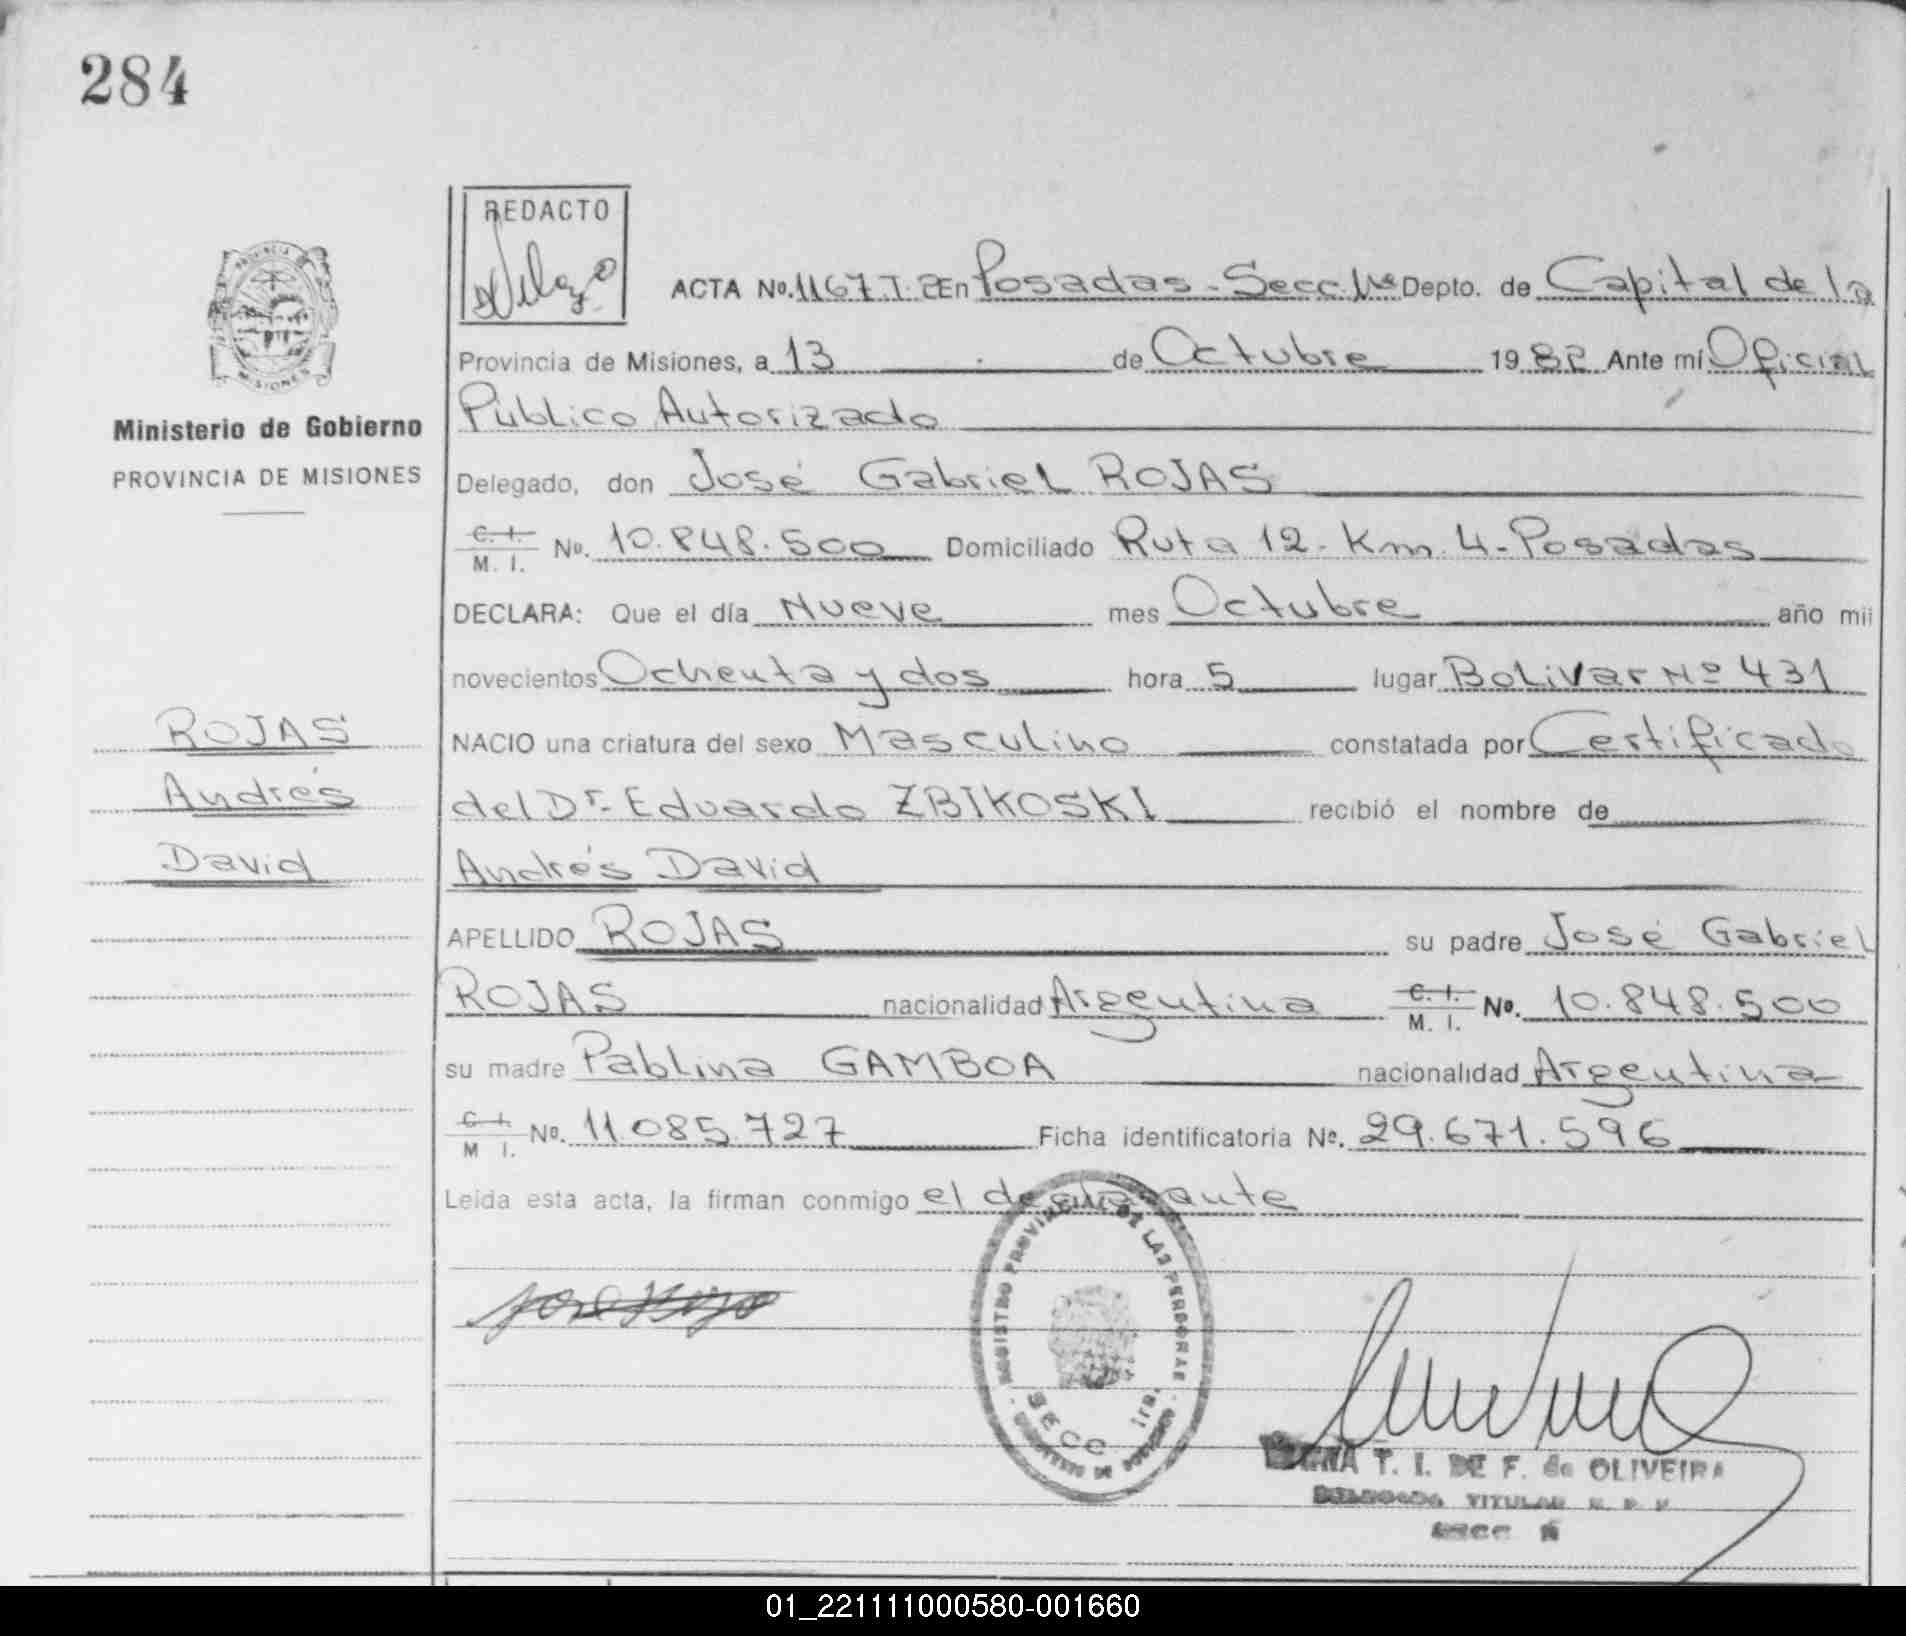 284
REDACTO
ACTA No. 1167 T. 2 En Posadas - Secc. 1ra Depto. de Capital de la
Provincia de Misiones, a 13 de Octubre 1982 Ante mí Oficial
Público Autorizado
Delegado, don José Gabriel ROJAS
C. I. M. I. No. 10.848.500 Domiciliado Ruta 12 - Km. 4 - Posadas
DECLARA: Que el día Nueve mes Octubre año mil
novecientos Ochenta y dos hora 5 lugar Bolivar Nº 431
NACIO una criatura del sexo Masculino constatada por Certificado
del Dr. Eduardo ZBIKOSKI recibió el nombre de
Andrés David
APELLIDO ROJAS su padre José Gabriel
ROJAS nacionalidad Argentina C. I. M. I. No. 10.848.500
su madre Pablina GAMBOA nacionalidad Argentina
C. I. M. I. No. 11.085.727 Ficha identificatoria No. 29.671.596
Leida esta acta, la firman conmigo el declarante
PROVINCIA DE MISIONES
Ministerio de Gobierno
PROVINCIA DE MISIONES
ROJAS
Andrés
David
REGISTRO PROVINCIAL DE LAS PERSONAS
SECC 1ra.
T. I. DE F. de OLIVEIRA
TITULAR
SECC
01_221111000580-001660